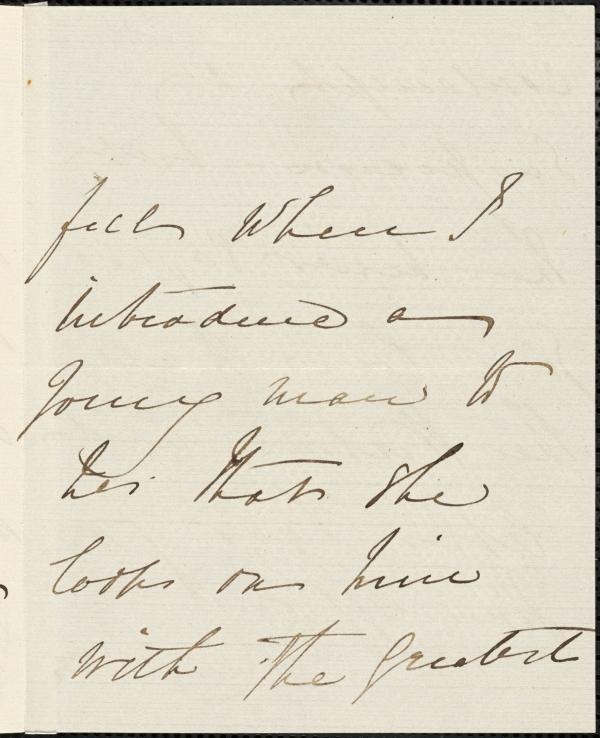 feels when I
introduce a
young man to
her that she
looks on him
with the greatest